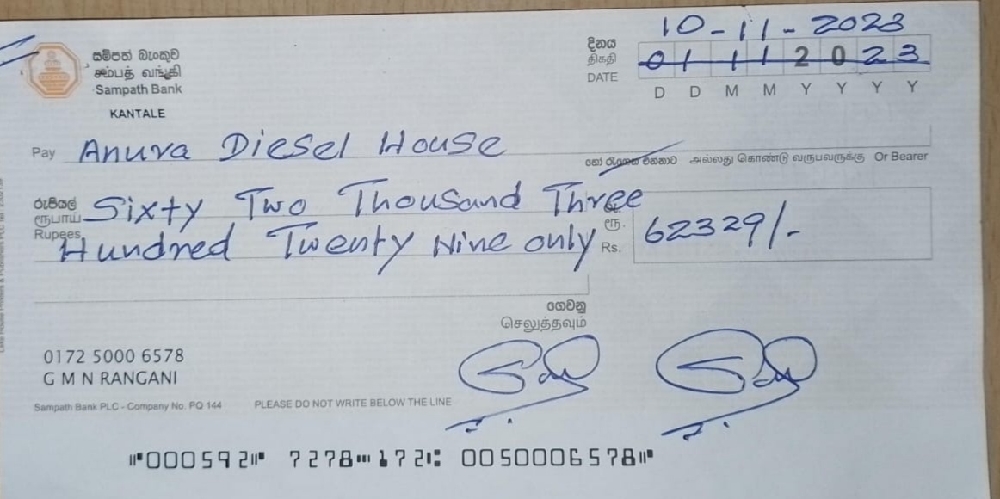 සම්පත් බැංකුව
சம்பத் வங்கி
Sampath Bank
KANTALE
10-11-2023
දිනය
திகதி
DATE
01112023
D D M M Y Y Y Y
Pay Anura Diesel House
හෝ රැගෙන එනකාට அல்லது கொண்டு வருபவருக்கு Or Bearer
රුපියල්
ரூபாய்
Rupees
Sixty Two Thousand Three
Hundred Twenty Nine only
රු.
ரூ.
Rs.
62329/-
ගෙවනු
செலுத்தவும்
0172 5000 6578
G M N RANGANI
Sampath Bank PLC - Company No. PQ 144 PLEASE DO NOT WRITE BELOW THE LINE
⑈000592⑈ 7278⑉172⑆ 0050006578⑈